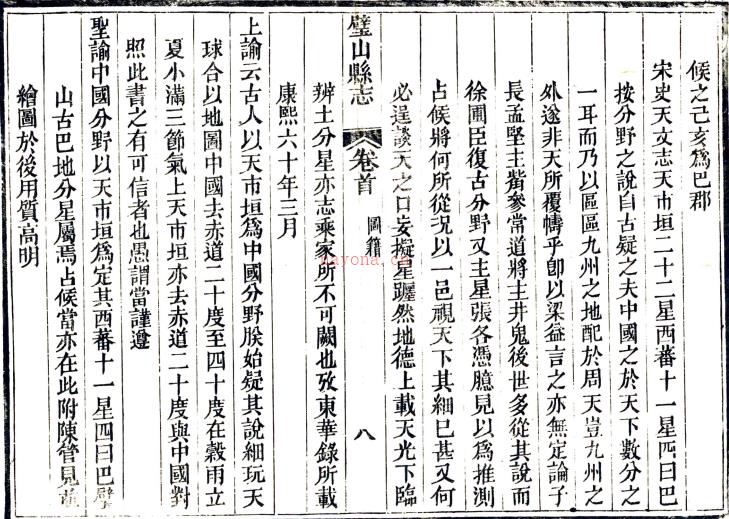 候之己亥爲巴郡
宋史天文志天市垣二十二星西蕃十一星四曰巴
按分野之說自古疑之夫中國之於天下數分之
一耳而乃以區區九州之地配於周天豈九州之
外遂非天所覆幬乎卽以梁益言之亦無定論子
長孟堅主觜參常道將主井鬼後世多從其說而
徐圃臣復古分野又主星張各憑臆見以爲推測
占候將何所從況以一邑視天下其細已甚又何
必逞談天之口妄擬星躔然地德上載天光下臨
璧山縣志 卷首 圖籍 八
辨土分星亦志乘家所不可闕也攷東華錄所載
康熙六十年三月
上諭云古人以天市垣爲中國分野朕始疑其說細玩天
球合以地圖中國去赤道二十度至四十度在穀雨立
夏小滿三節氣上天市垣亦去赤道二十度與中國對
照此書之有可信者也愚謂當謹遵
聖諭中國分野以天市垣爲定其西蕃十一星四曰巴璧
山古巴地分星屬焉占候當亦在此附陳管見
繪圖於後用質高明
nayona.cn